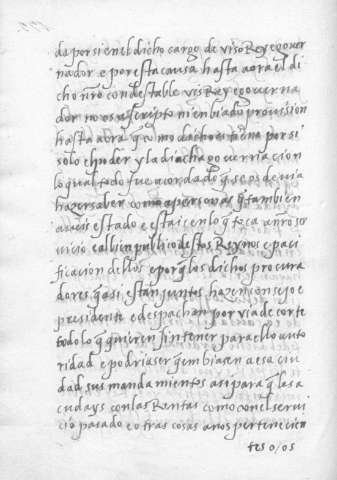 da por si en el dicho cargo de viso Rey e gover
nador e por esta causa hasta agora el di
cho nr̃o condestable vis Rey e governa
dor no vos a escripto ni enbiado provision
hasta aora q̃ como dicho es tiene por si
solo el poder y la dicha governacion
lo qual todo fue acordado q̃ se os devia
hazer saber como a personas q̃ tambien
aveis estado e estais en lo q̃ toca a nr̃o ser
vicio e al bien publico destos Reynos e paci
ficacion dellos e porq̃ los dichos procura
dores q̃ asi estan juntos hazen consejo e
presidente e despachan por via de corte
todo lo q̃ quieren sin tener para ello auto
ridad e podria ser q̃ embiasen a esa ciu
dad sus mandamientos asi para q̃ las a
cudays con las Rentas como con el servi
cio pasado e otras cosas a nos pertenecien
tes o/os